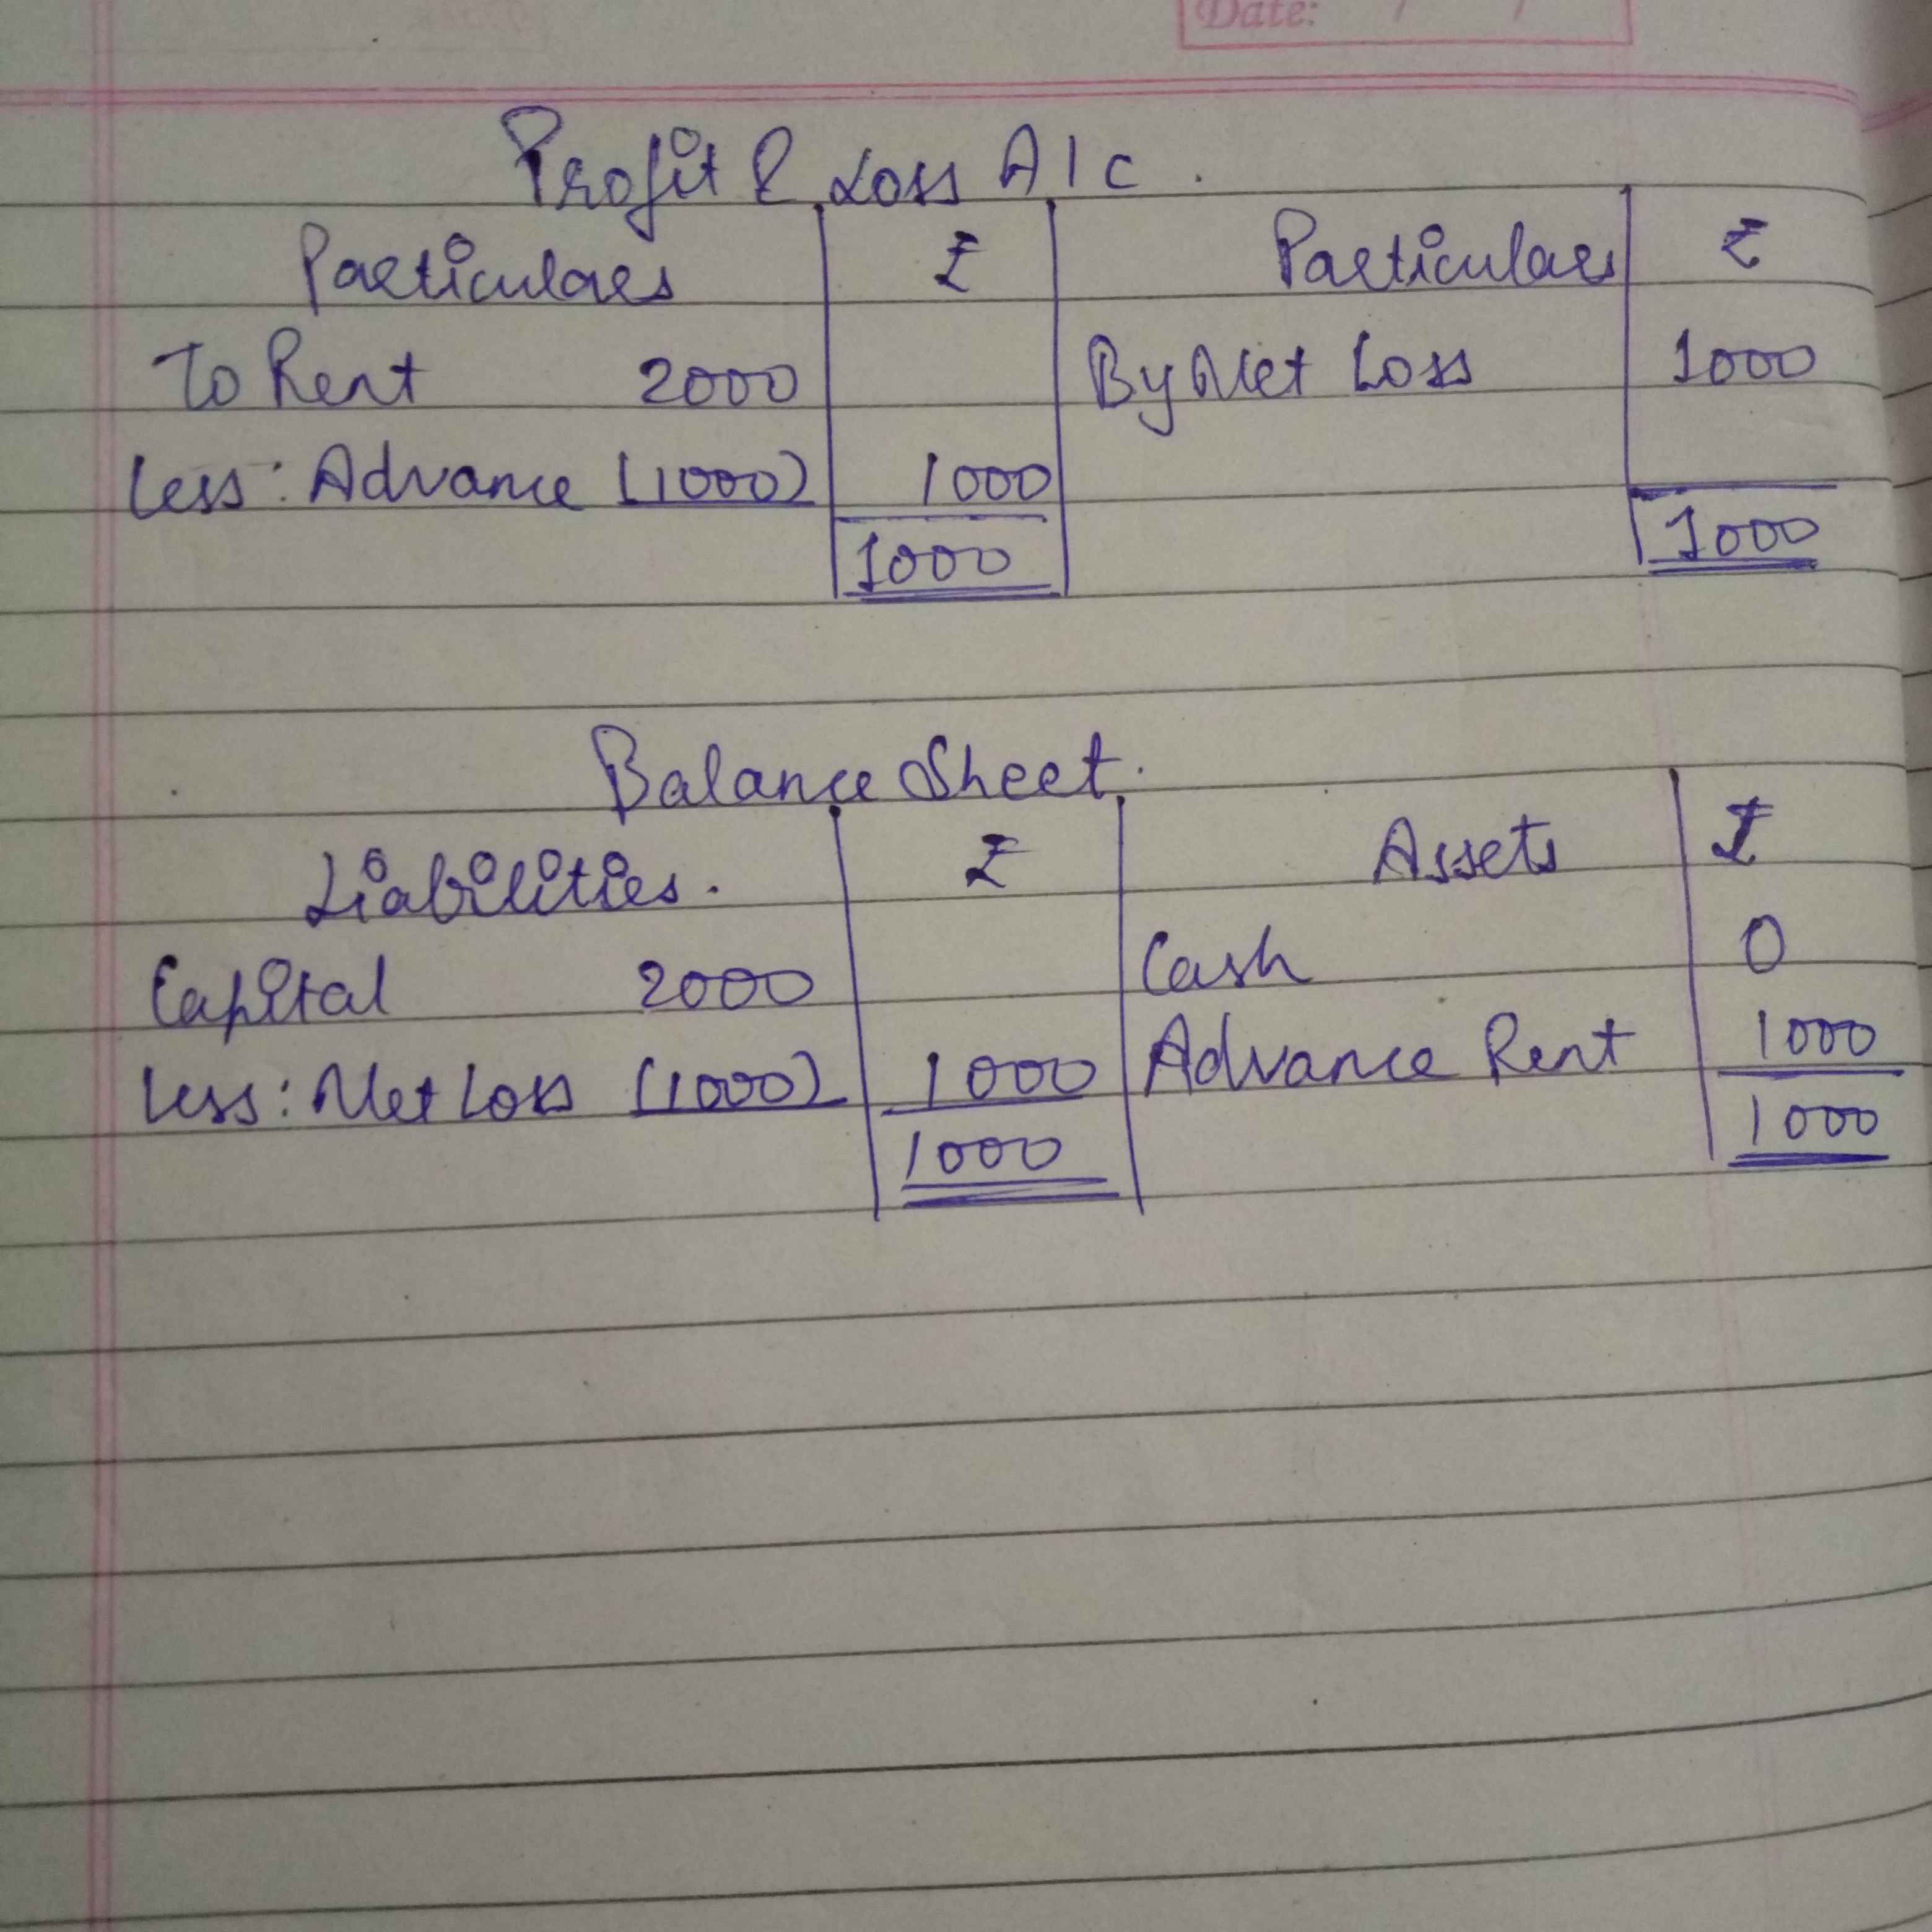 Date: / /
Profit & Loss A/c.
Particulars ₹ Particulars ₹
To Rent 2000 By Net Loss 1000
Less: Advance (1000) 1000
1000 1000
Balance Sheet.
Liabilities. ₹ Assets ₹
Capital 2000 Cash 0
Less: Net Loss (1000) 1000 Advance Rent 1000
1000 1000